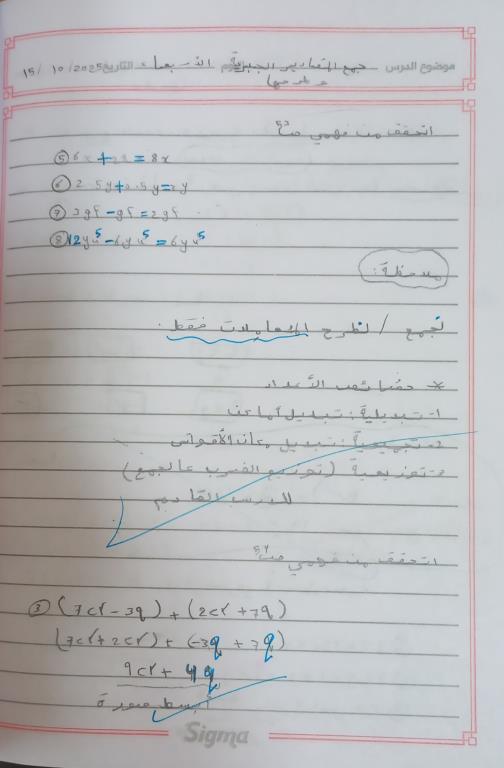 موضوع الدرس جمع المقادير الجبرية اليوم الأربعاء التاريخ 15/10/2025
و طرحها
اتحقق من فهمي ص
⑤ 6x + 2x = 8x
⑥ 2.5y = 2y
⑦ 3gf - gf = 2gf
⑧ 12yu⁵ - 6yu⁵ = 6yu⁵
ملاحظة:
نجمع / نطرح المعاملات فقط.
* خصائص الأعداد
1- تبديلية: تبديل أماكن
2- تجميعية: تبديل مكان الأقواس
3- توزيعية (توزيع الضرب عالجمع)
للدرس القادم
اتحقق من فهمي ص
③ (7cr - 3q) + (2cr + 7q)
(7cr + 2cr) + (-3q + 7q)
9cr + 4q
أبسط صورة
Sigma